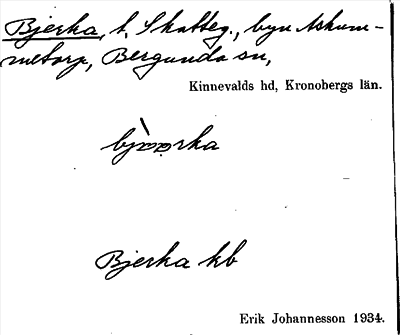 Bjerka, t. Skatteg., byn Askum-
metorp, Bergunda sn,
Kinnevalds hd, Kronobergs län.
Bjerka kb
Erik Johannesson 1934.